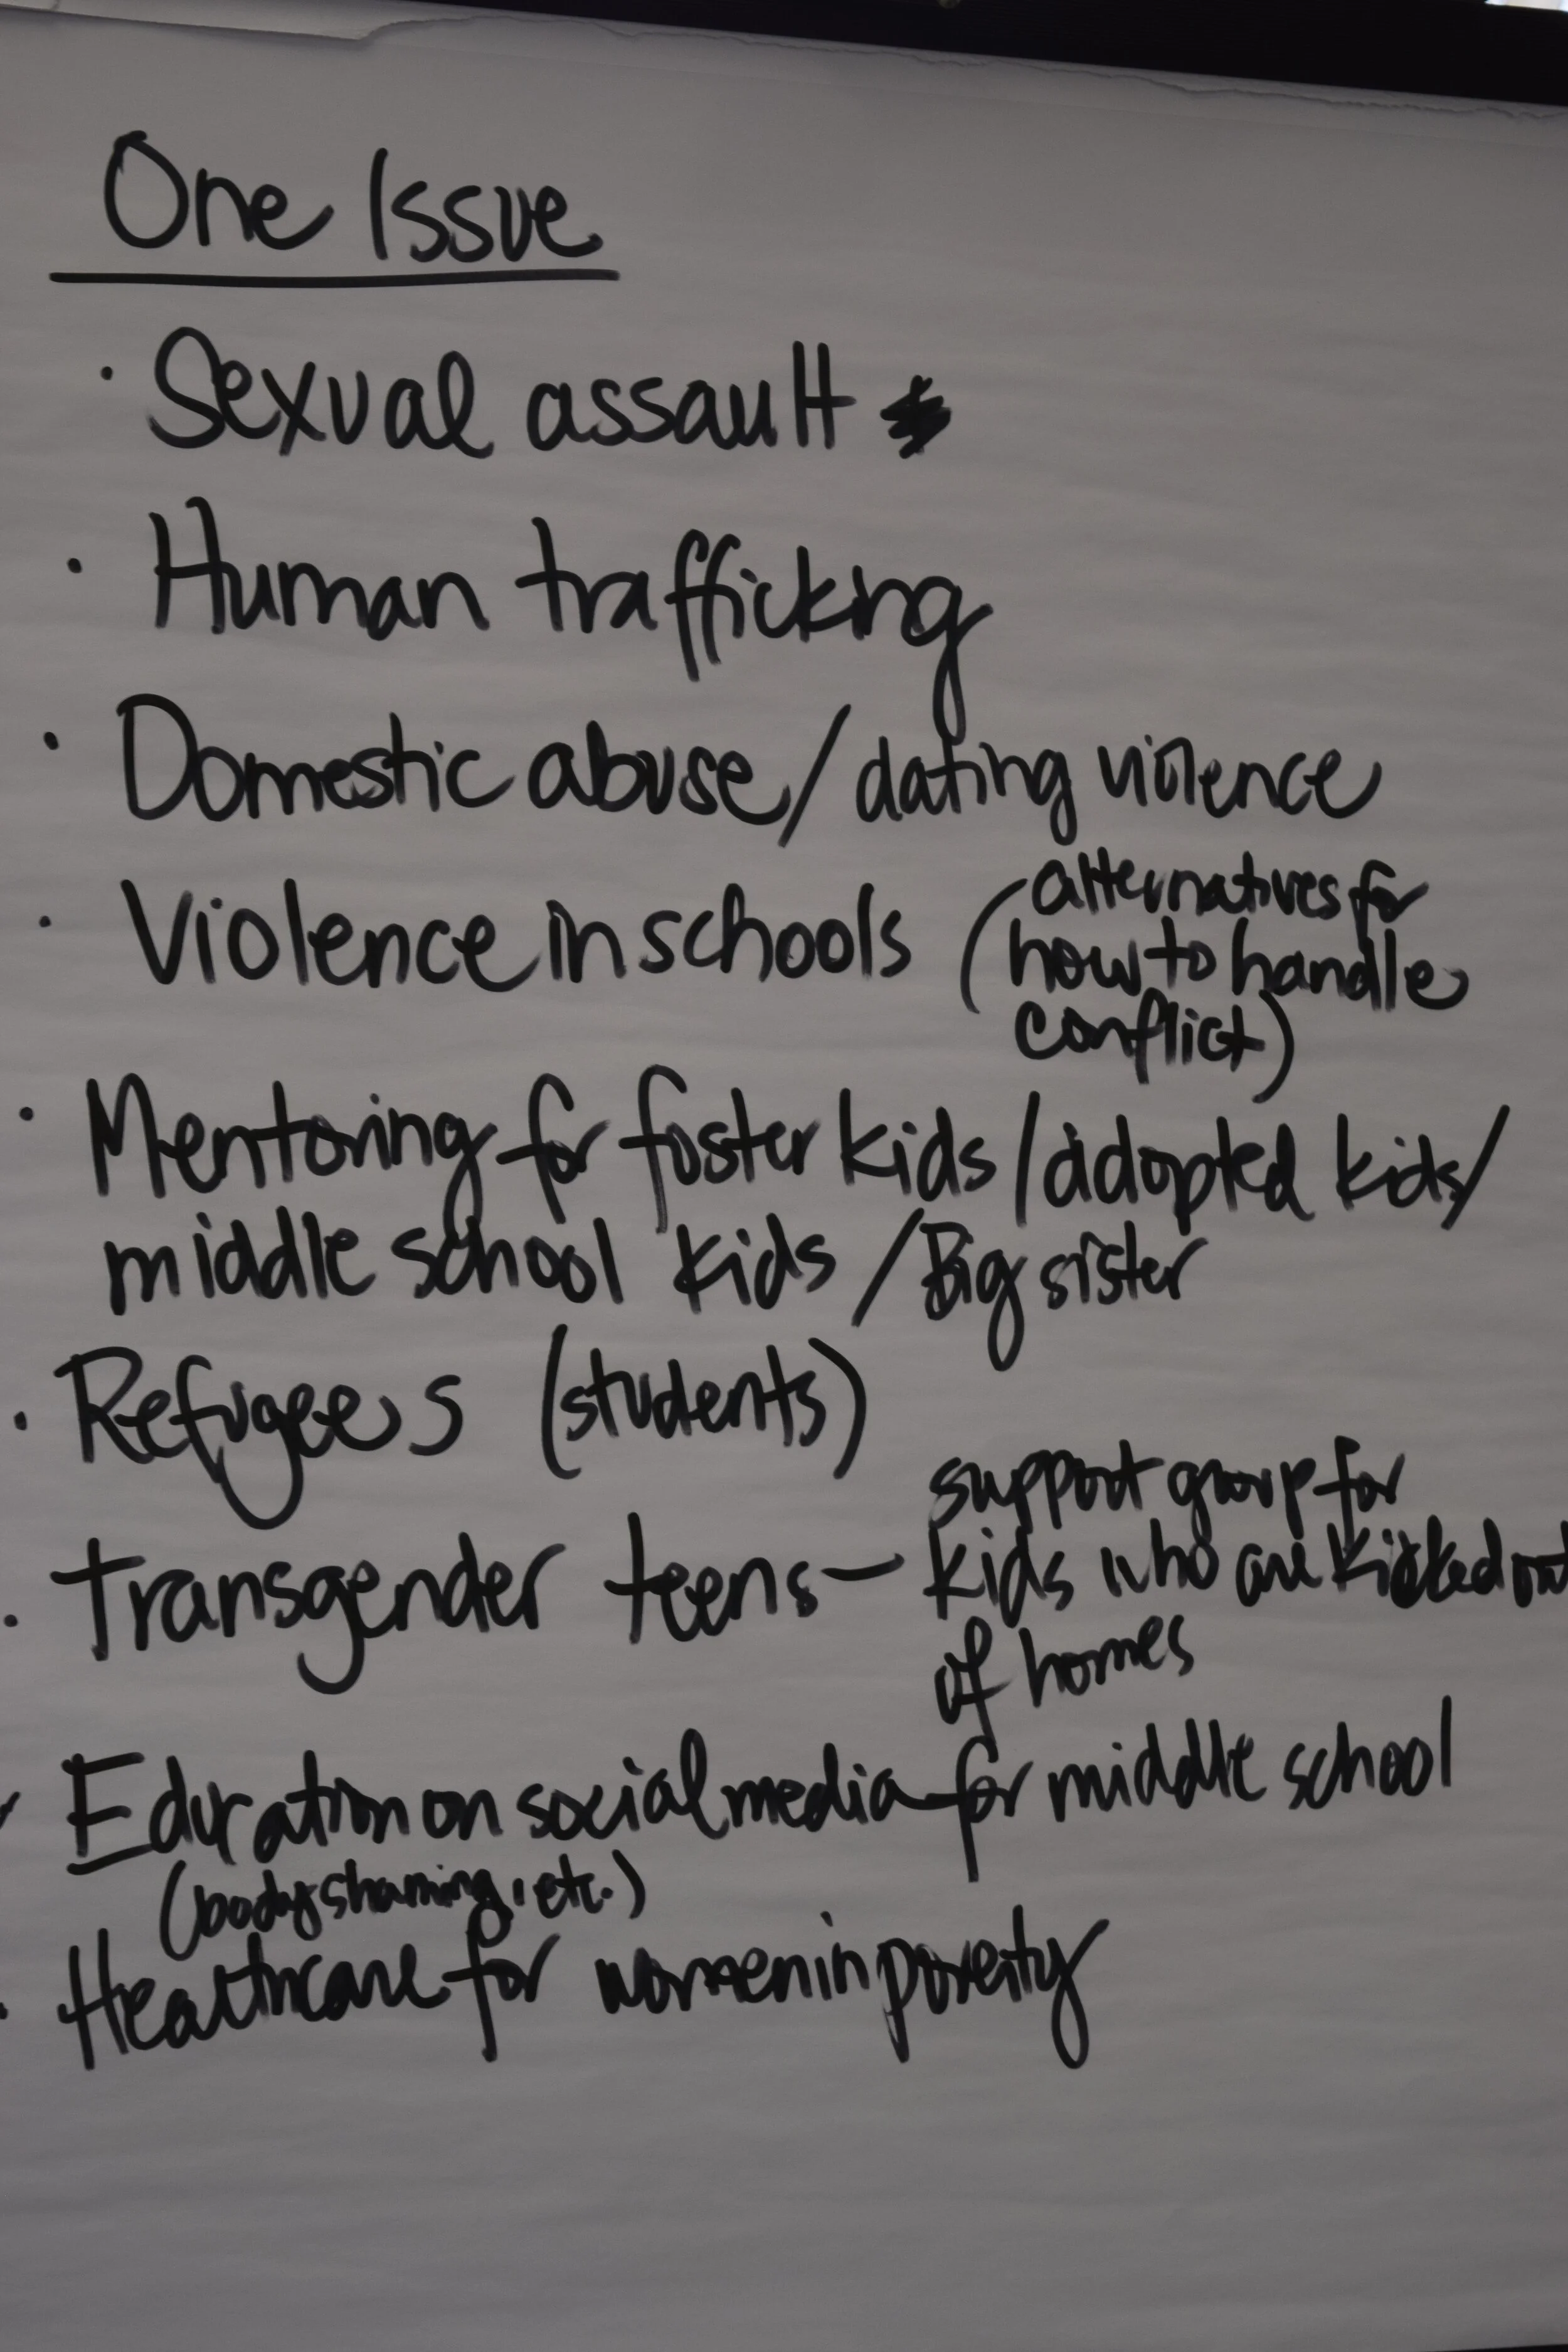 One Issue
· Sexual assault *
· Human trafficking
· Domestic abuse/dating violence
· Violence in schools (alternatives for
how to handle
conflict)
· Mentoring for foster kids/adopted kids/
middle school kids/Big sister
· Refugees (students)
· Transgender teens — support group for
kids who are kicked out
of homes
· Education on social media for middle school
(body shaming, etc.)
· Healthcare for women in poverty